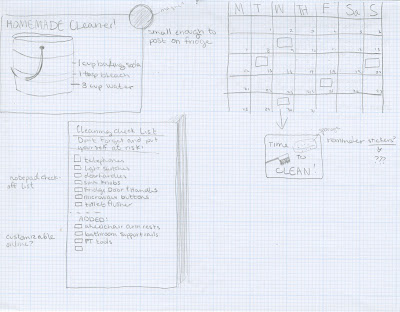 HOMEMADE Cleaner!
small enough to
post on fridge
1 cup baking soda
1 tbsp bleach
8 cup water
M T W TH F Sa S
Cleaning Check List
Don't forget and put
yourself at risk!
telephones
light switches
doorknobs
sink knobs
fridge Door Handles
microwave buttons
toilet flusher
ADDED!
wheelchair armrests
bathroom support rails
PT tools
notepad check-
off list
customizable
online?
Time
TO
CLEAN!
reminder stickers
???